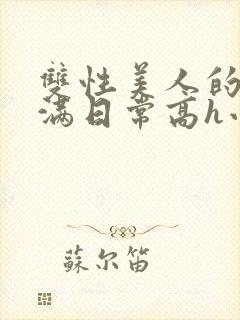 雙性美人的
滿日常高h
蘇尔笛